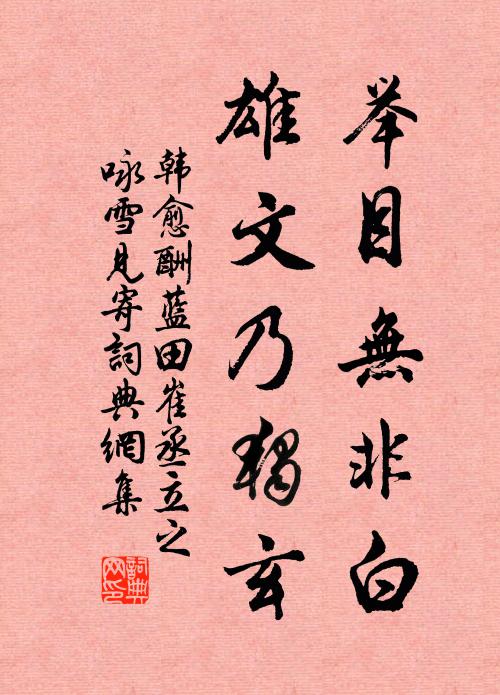 举目無非白
雄文乃獨玄
韩愈酬蓝田崔丞立之
咏雪見寄詞典網集
詞典
网印